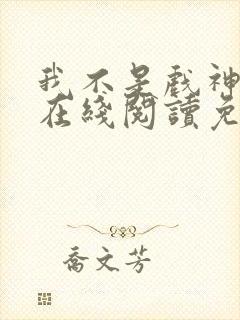 我不是戲神
在綫閱讀免
喬文芳